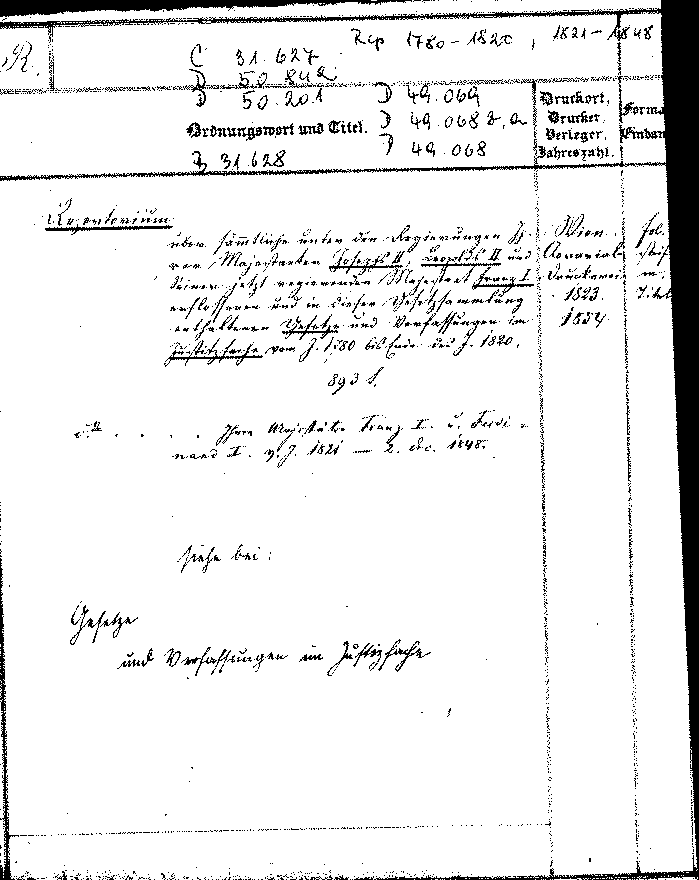 R.
Rep 1780-1820, 1821-1848
C 31.627
D 50.842
D 50.201
D 49.069
Ordnungswort und Titel.
D 49.068 2, a
D 49.068
31.628
Druckort,
Drucker,
Verleger,
Jahreszahl.
Forma
Einban
Repertorium
über sämtliche unter den Regierungen Ih-
rer Majestäten Josephs II, Leopolds II und
Seiner jetzt regierenden Majestaet Franz I
erflossenen und in dieser Gesetzsammlung
enthaltenen Gesetze und Verfassungen im
Justitzfache vom J. 1780 bis Ende des J. 1820.
893 S.
Wien
Aerarial-
Druckerei
1823.
1854.
fol.
steif
m.
Titel
dto . . . . Ihrer Majestäten Franz I. u. Ferdi-
nand I. v. J. 1821 — 2. Dec. 1848.
siehe bei:
Gesetze
und Verfassungen im Justizfache